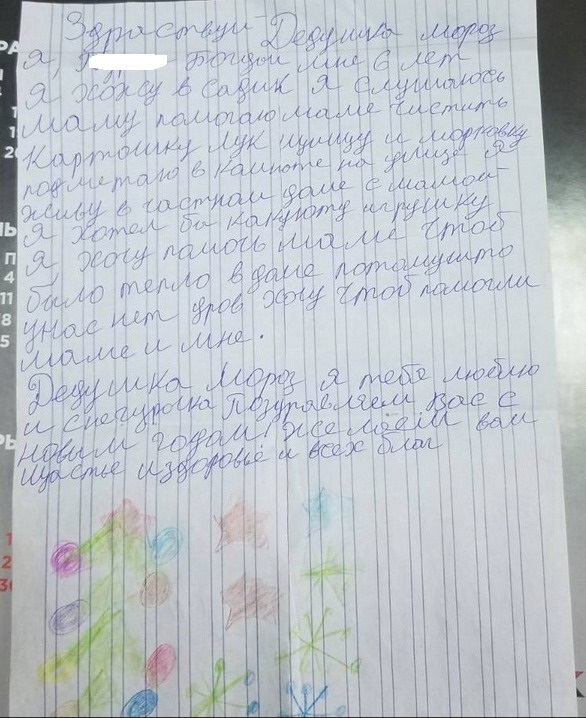 Здраствуй Дедушка Мороз
Я, Богдан мне 6 лет
Я хожу в садик Я слушаюсь
маму помогаю маме чистить
Картошку лук пшицу и морковку
подметаю в комноте на улице Я
живу в частном доме с мамой
Я хотел бы какуюто игрушку
Я, хочу помочь маме Чтоб
было тепло в доме потомушто
унас нет дров хочу Чтоб помогли
маме и мне.
Дедушка Мороз я тебя люблю
и снегурочка Поздравляем Вас с
новым годом! желаем вам
щастье издоровье и всех благ